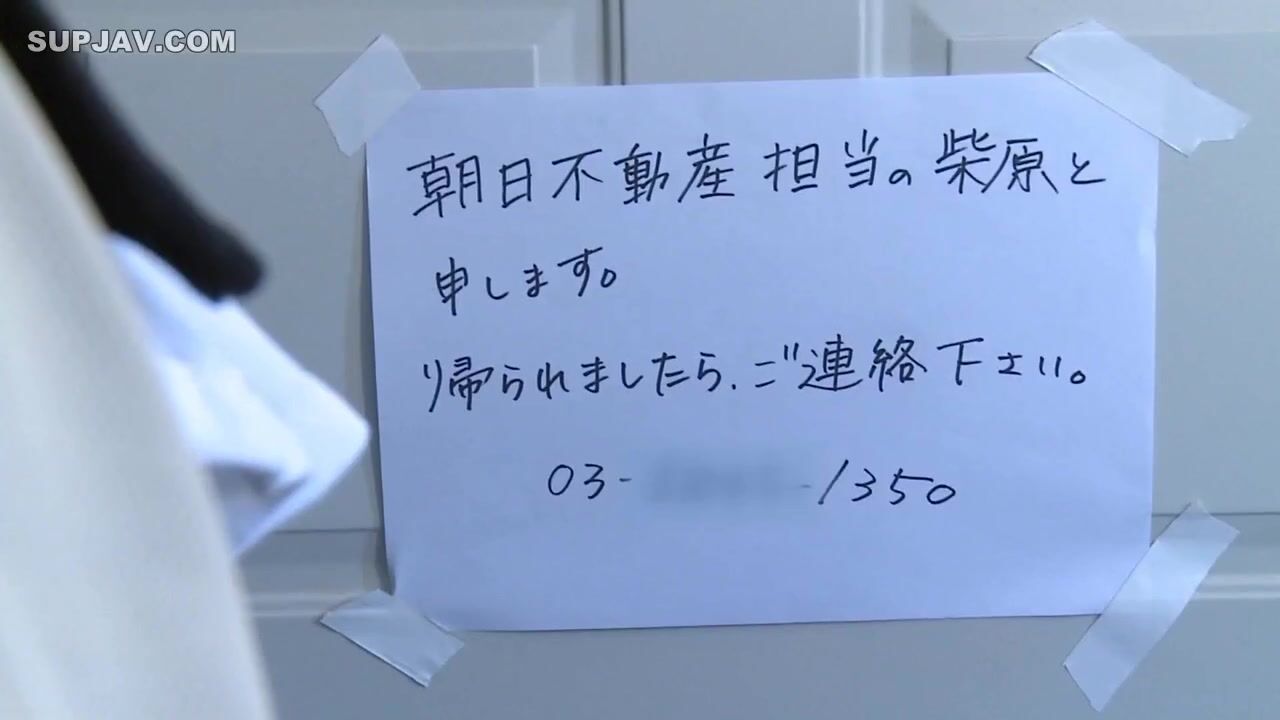 SUPJAV.COM
朝日不動産 担当の柴原と
申します。
帰られましたら、ご連絡下さい。
03- -1350